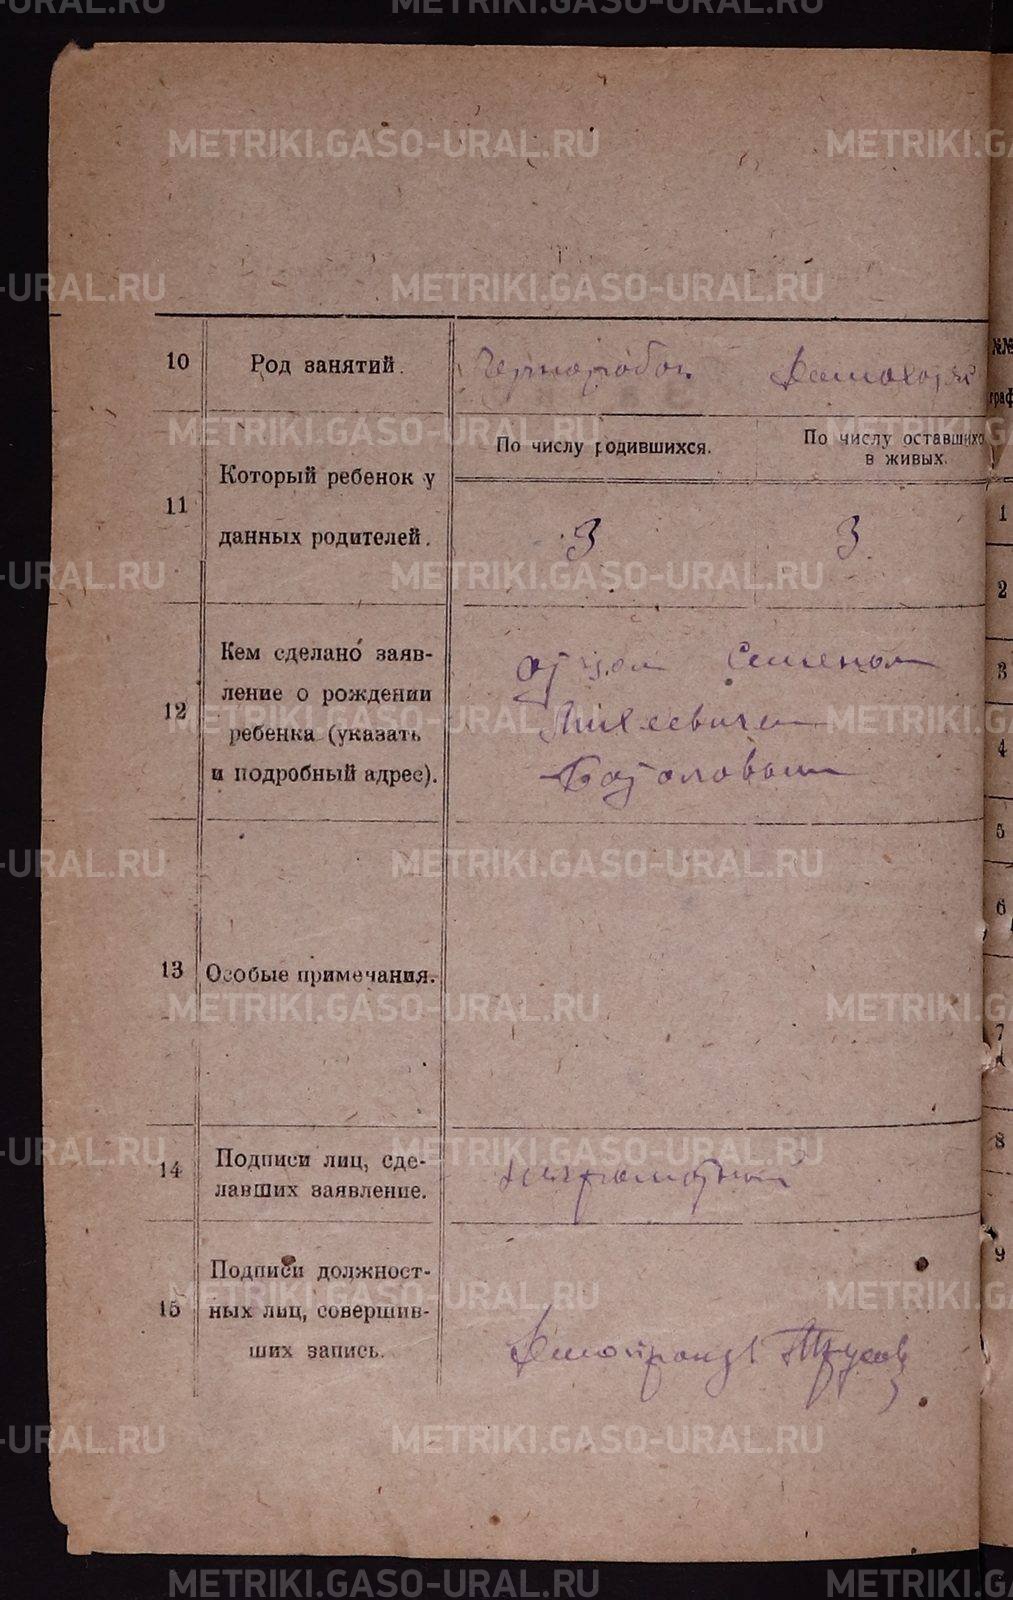 METRIKI.GASO-URAL.RU
10 Род занятий. Чернорабоч. Домохоз.
11 Который ребенок у данных родителей.
По числу родившихся.
По числу оставшихс
в живых.
3 3.
12 Кем сделано заяв-
ление о рождении
ребенка (указать
и подробный адрес).
отцом Семеном
Михеевичем
13 Особые примечания.
14 Подписи лиц, сде-
лавших заявление.
неграмотный
15 Подписи должност-
ных лиц, совершив-
ших запись.
Делопроизв Трусов
№№
граф
1
2
3
4
5
6
7
8
9